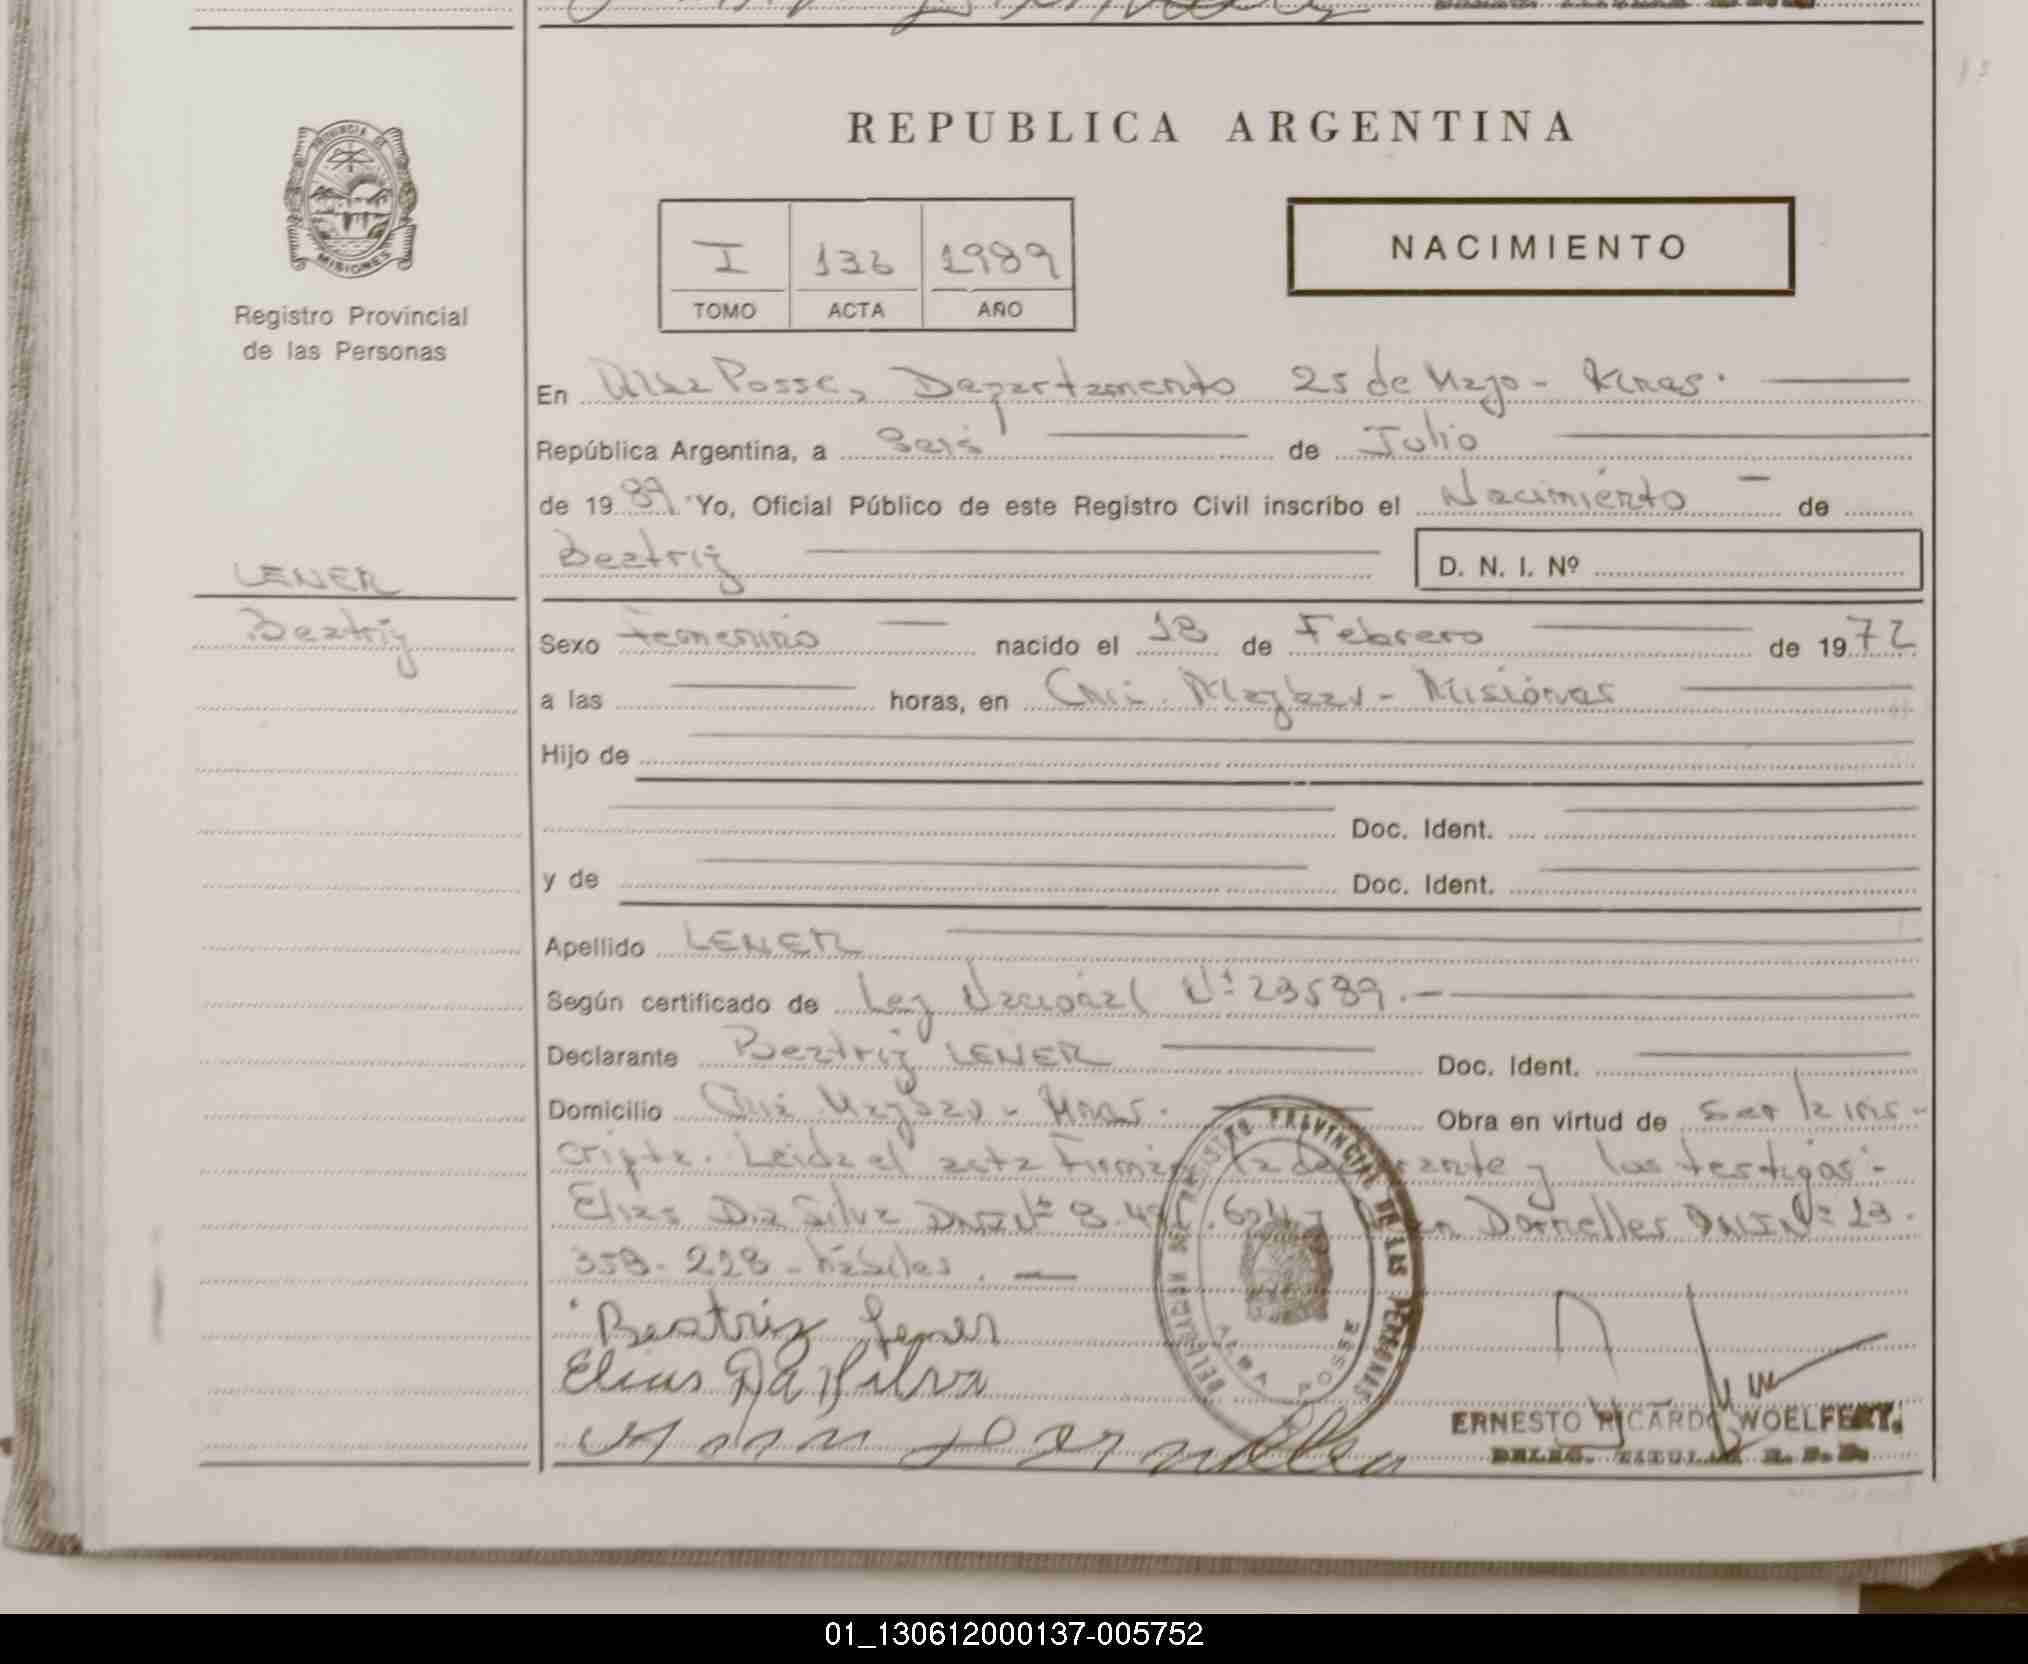 REPUBLICA ARGENTINA
PROVINCIA DE
MISIONES
Registro Provincial
de las Personas
I 136 1989
TOMO ACTA AÑO
NACIMIENTO
En Alba Posse, Departamento 25 de Mayo - Mnas.
República Argentina, a Seis de Julio
de 1989. Yo, Oficial Público de este Registro Civil inscribo el Nacimiento de
Beatriz D. N. I. Nº
LENER
Beatriz
Sexo Femenino nacido el 18 de Febrero de 1972
a las horas, en Misiones
Hijo de
Doc. Ident.
y de Doc. Ident.
Apellido LENER
Según certificado de Ley Nacional Nº 23589.-
Declarante Beatriz LENER Doc. Ident.
Domicilio Mnas. Obra en virtud de ser la ins-
cripta. Leida el acta Firman la declarante y los testigos:-
Elias Da Silva DNI Nº Dornelles DNI Nº 13.
358.228 - hábiles.
Beatriz Lener
Elias Da Silva
REGISTRO PROVINCIAL DE LAS PERSONAS
ALBA POSSE
ERNESTO RICARDO WOELFERT
DELEG. TITULAR R. P. P.
01_130612000137-005752